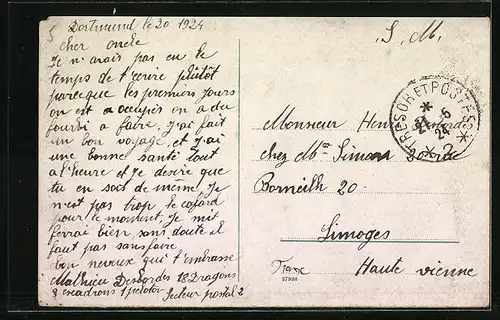 S. M.
Dortmund le 20 1924
cher oncle
Je n'avais pas eu le
temps de t'ecrire plutôt
parceque les premiers jours
on est a occupés on a du
fourbi a faire. J'ai fait
un bon voyage et j'ai
une bonne santé tout
a l'heure et Je desire que
tu en soit de meme. Je
n'est pas trop le cafard
pour le moment. Je mit
ferrai bien sans doute il
faut pas sans faire.
bon neveux qui t'embrasse
Mathieu Desbordes 18 Dragons
escadrons 1 peloton
Secteur postal 2
TRESOR ET POSTES
Monsieur Henri Desbordes
chez Mr Simon
Borneilh 20.
Limoges
Haute vienne